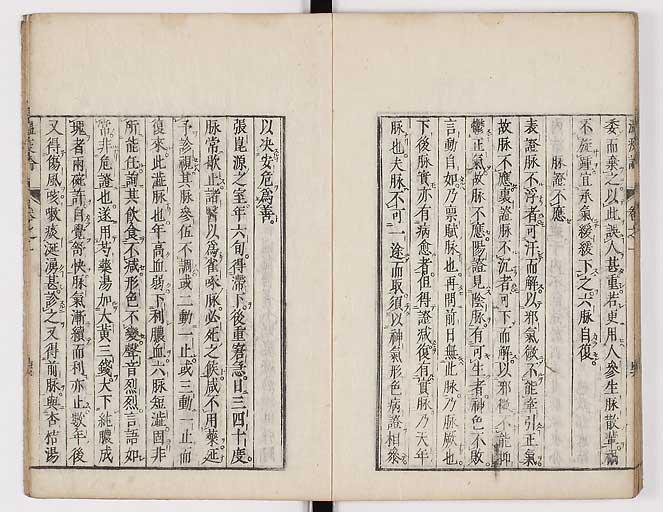 委而棄之以此誤人甚重若更用人參生脉散輩禍
不旋踵宜承氣緩緩下之六脉自復
脉證不應
表證脉不浮者可汗而解以邪氣微不能牽引正氣
故脉不應裏證脉不沉者可下而解以邪微不能抑
鬱正氣故脉不應陽證見陰脉有可生者神色不敗
言動自如乃禀賦脉也再問前日無此脉乃脉厥也
下後脉實亦有病愈者但得證减復有實脉乃天年
脉也夫脉不可一途而取須以神氣形色病證相參
以决安危為善
張崑源之室年六旬得滯下後重窘急日三四十度
脉常歇止諸醫以為雀啄脉必死之候咸不用藥延
予診視其脉參伍不調或二動一止或三動一止而
復來此澁脉也年高血弱下利膿血六脉短澁固非
所能任詢其飲食不减形色不變聲音烈烈言語如
常非危證也遂用芍藥湯加大黃三錢大下純膿成
塊者兩碗許自覺舒快脉氣漸續而利亦止數年後
又得傷風咳嗽痰涎湧甚診之又得前脉與杏桔湯